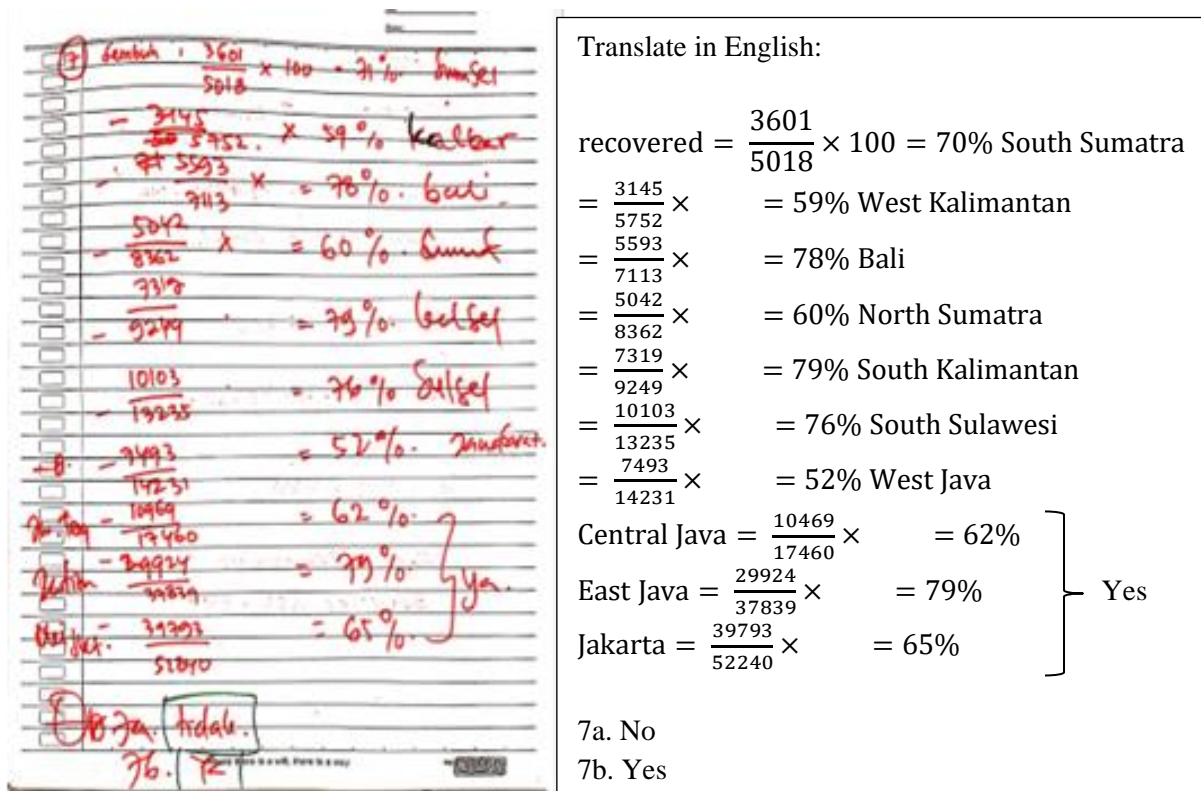 7 Sembuh : 3601/5018 × 100 = 71% Sumsel
- 3145/5752. × 59% kalbar
- 5593/7113 × = 78%. bali
- 5042/8362 × = 60%. Sumut
- 7319/9249 = 79%. kalsel
- 10103/13235 = 76% Sulsel
- 7493/14231 = 52%. Jawa barat.
- 10469/17460 = 62%.
Jatim - 29924/37839. = 79%. ya.
- 39793/52840 = 65%.
7a. tidak.
7b. Ya
Translate in English:
recovered = 3601/5018 × 100 = 70% South Sumatra
= 3145/5752 × = 59% West Kalimantan
= 5593/7113 × = 78% Bali
= 5042/8362 × = 60% North Sumatra
= 7319/9249 × = 79% South Kalimantan
= 10103/13235 × = 76% South Sulawesi
= 7493/14231 × = 52% West Java
Central Java = 10469/17460 × = 62%
East Java = 29924/37839 × = 79% Yes
Jakarta = 39793/52240 × = 65%
7a. No
7b. Yes